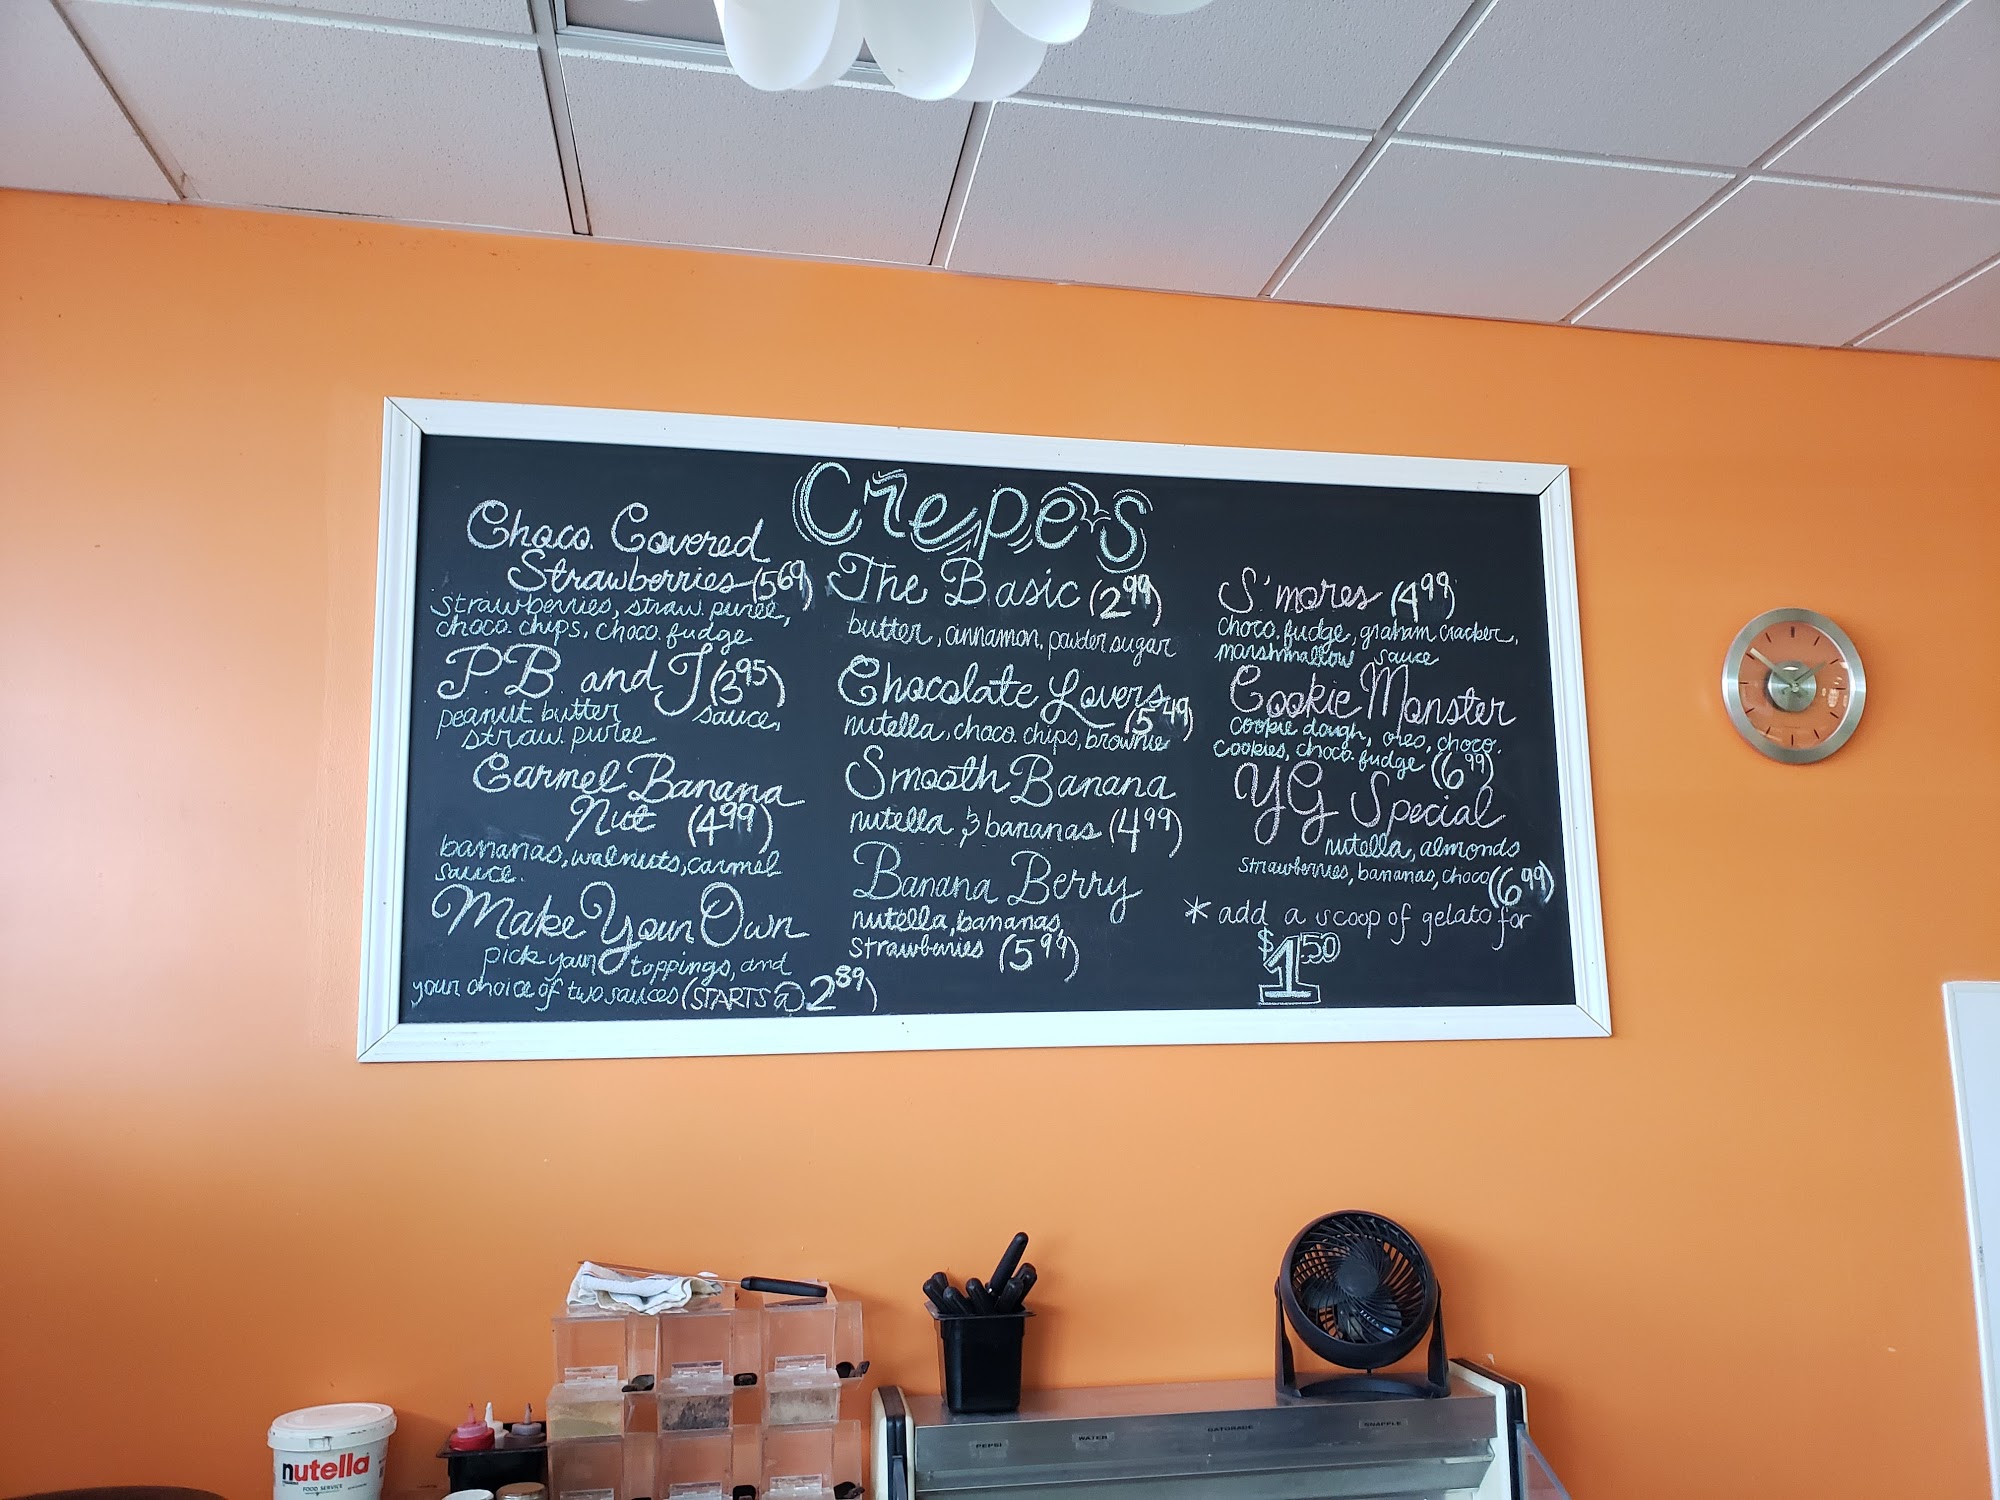 Crepe's
Choco. Covered
Strawberries (5.69)
strawberries, straw. puree,
choco. chips, choco. fudge
P.B. and J (3.95)
peanut butter sauce,
straw. puree
Carmel Banana
Nut (4.99)
bananas, walnuts, carmel
sauce.
Make Your Own
pick your toppings, and
your choice of two sauces (STARTS @ 2.89)
The Basic (2.99)
butter, cinnamon, powder sugar
Chocolate Lovers
(5.49)
nutella, choco. chips, brownie
Smooth Banana
nutella & bananas (4.99)
Banana Berry
nutella, bananas,
strawberries (5.99)
S'mores (4.99)
choco. fudge, graham cracker,
marshmallow sauce
Cookie Monster
cookie dough, oreo, choco.
cookies, choco. fudge (6.99)
YG Special
nutella, almonds
strawberries, bananas, choco (6.99)
* add a scoop of gelato for
$1.50
nutella
FOOD SERVICE
PEPSI
WATER
GATORADE
SNAPPLE